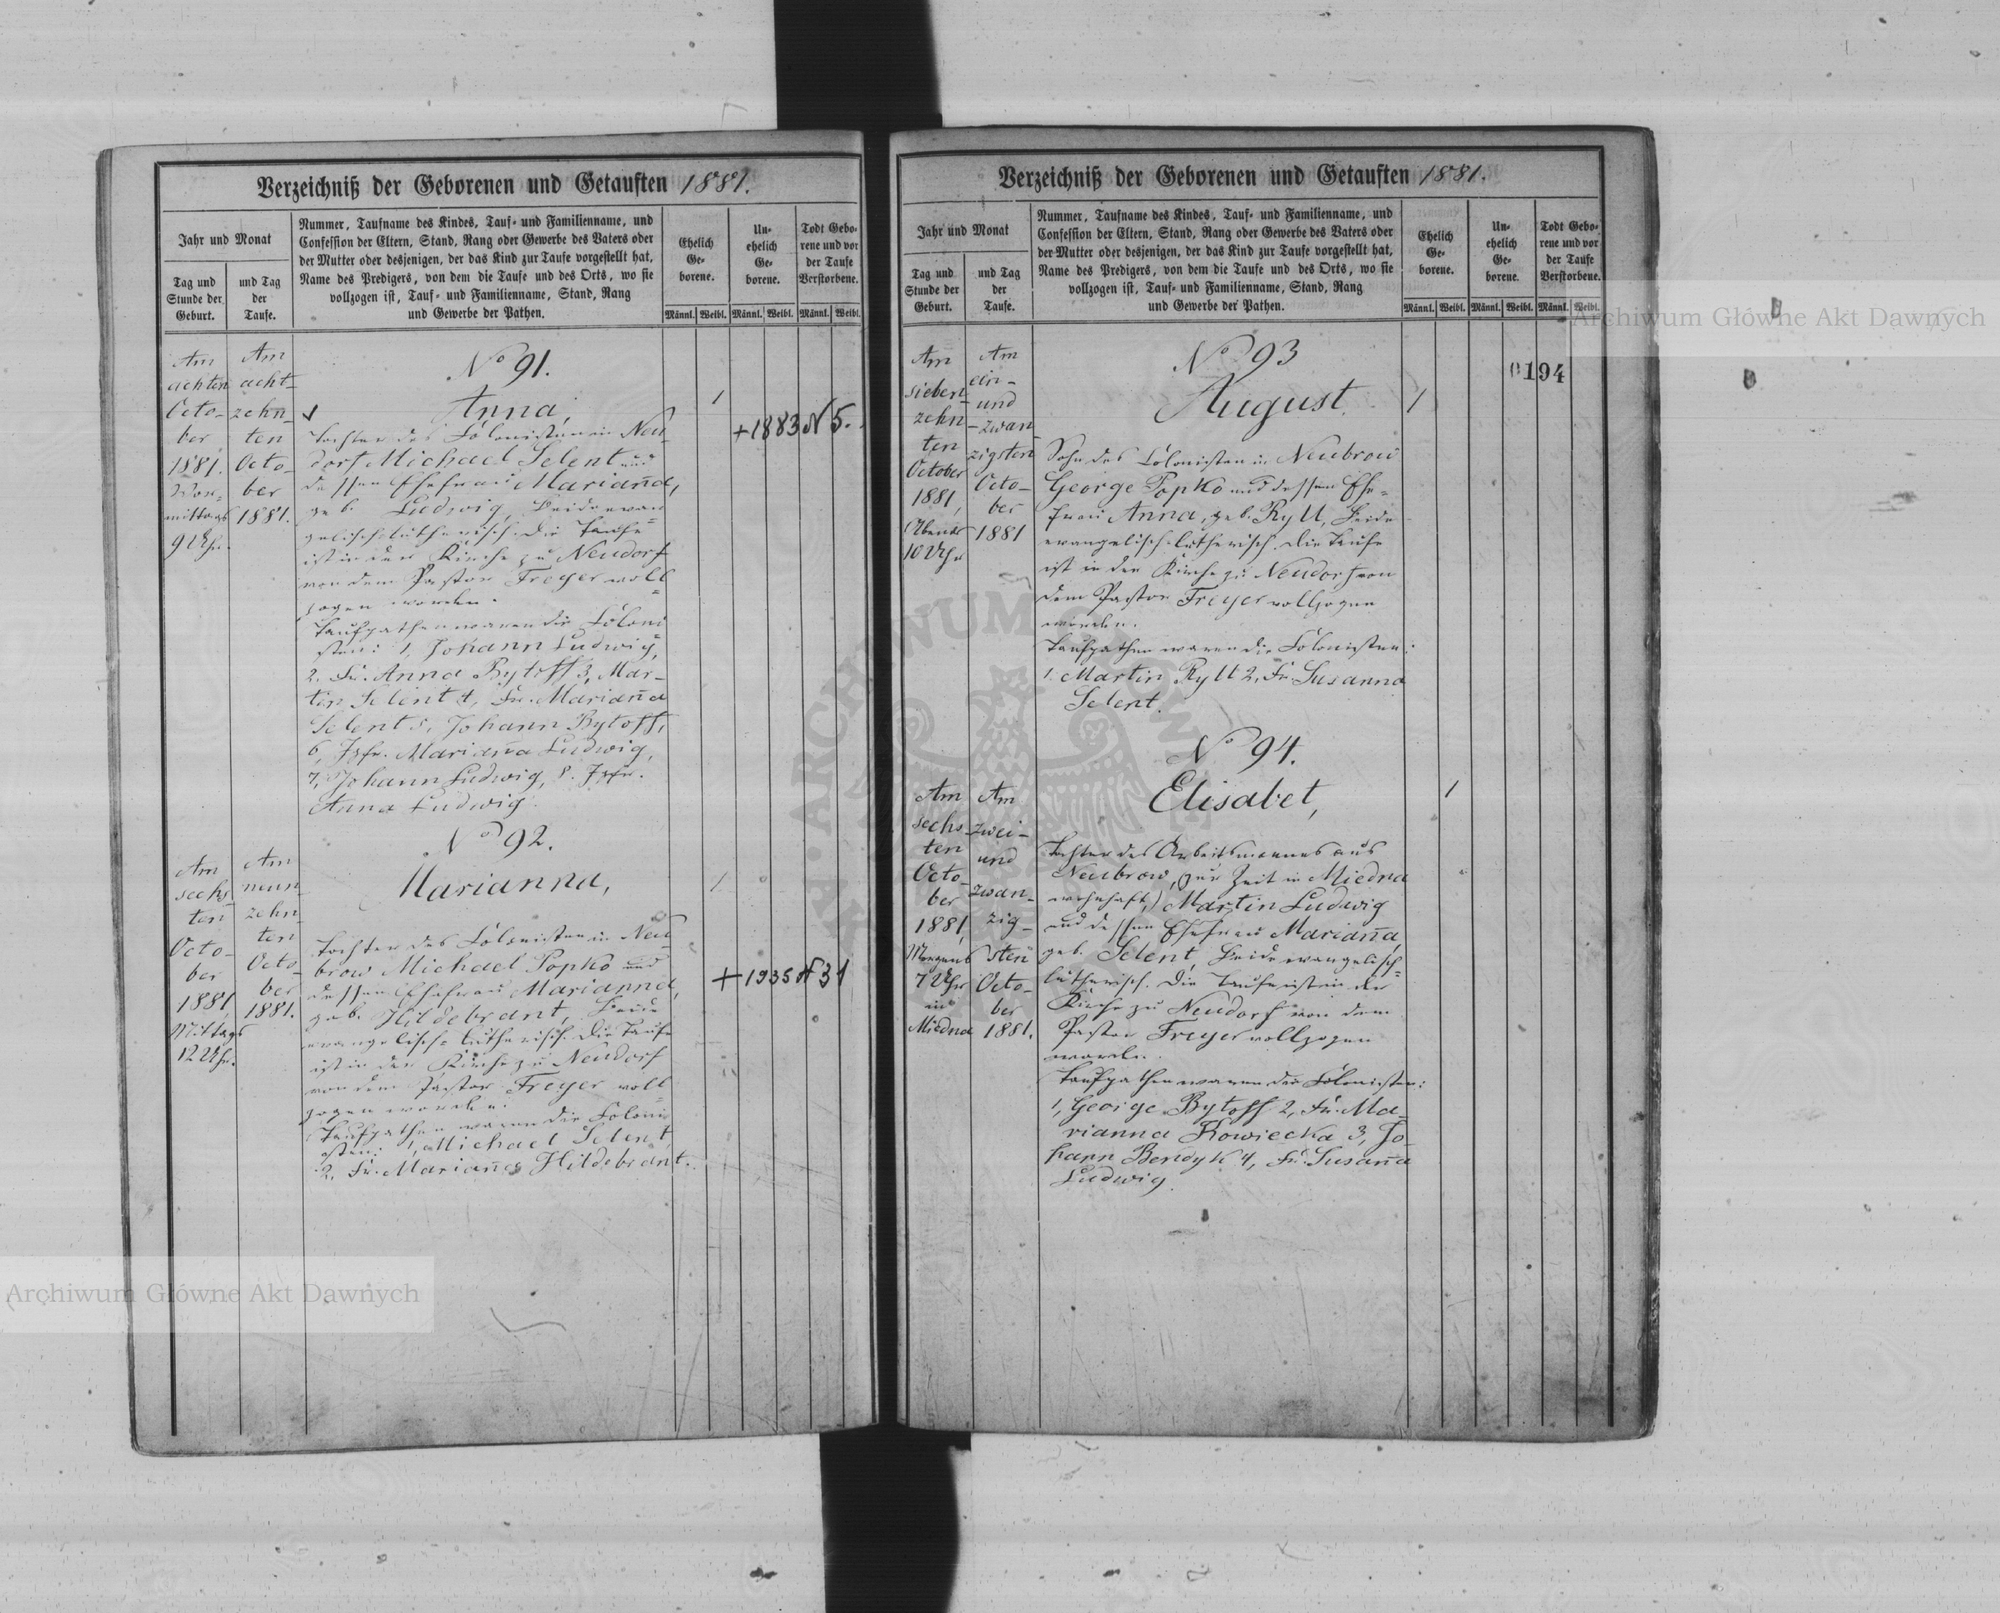 Verzeichniß der Geborenen und Getauften 1881.
Jahr und Monat
Tag und
Stunde der
Geburt.
und Tag
der
Taufe.
Nummer, Taufname des Kindes, Tauf- und Familienname, und
Confession der Eltern, Stand, Rang oder Gewerbe des Vaters oder
der Mutter oder desjenigen, der das Kind zur Taufe vorgestellt hat,
Name des Predigers, von dem die Taufe und des Orts, wo sie
vollzogen ist, Tauf- und Familienname, Stand, Rang
und Gewerbe der Pathen.
Ehelich
Ge-
borene.
Un-
ehelich
Ge-
borene.
Todt Gebo-
rene und vor
der Taufe
Verstorbene.
Männl. Weibl. Männl. Weibl. Männl. Weibl.
Am
achten
Octo-
ber
1881.
Vor-
mittags
9 Uhr.
Am
acht-
zehn-
ten
Octo-
ber
1881.
No 91.
Anna,
Tochter des Colonisten in Neu-
dorf Michael Selent und
dessen Ehefrau Marianna,
geb. Ludwig, Beide evan
gelisch-lutherisch. Die Taufe
ist in der Kirche zu Neudorf
von dem Pastor Freyer voll
zogen worden.
Taufpathen waren die Coloni
sten: 1, Johann Ludwig,
2. Fr. Anna Bytoff 3, Mar-
tin Selent 4, Fr. Marianna
Selent 5, Johann Bytoff,
6, Jgfr. Marianna Ludwig,
7, Johann Ludwig, 8. Jgfr.
Anna Ludwig.
1
+1883 N 5.
Am
sechs-
ten
Octo-
ber
1881,
Mittags
12 Uhr.
Am
neun-
zehn-
ten
Octo-
ber
1881.
No 92.
Marianna,
Tochter des Colonisten in Neu-
brow Michael Popko und
dessen Ehefrau Marianna,
geb. Hildebrant, Beide
evangelisch-lutherisch. Die Taufe
ist in der Kirche zu Neudorf
von dem Pastor Freyer voll
zogen worden.
Taufpathen waren die Coloni
sten: 1, Michael Selent
2. Fr. Marianna Hildebrant.
1
+1935 N 31
Verzeichniß der Geborenen und Getauften 1881.
Jahr und Monat
Tag und
Stunde der
Geburt.
und Tag
der
Taufe.
Nummer, Taufname des Kindes, Tauf- und Familienname, und
Confession der Eltern, Stand, Rang oder Gewerbe des Vaters oder
der Mutter oder desjenigen, der das Kind zur Taufe vorgestellt hat,
Name des Predigers, von dem die Taufe und des Orts, wo sie
vollzogen ist, Tauf- und Familienname, Stand, Rang
und Gewerbe der Pathen.
Ehelich
Ge-
borene.
Un-
ehelich
Ge-
borene.
Todt Gebo-
rene und vor
der Taufe
Verstorbene.
Männl. Weibl. Männl. Weibl. Männl. Weibl.
0194
Am
sieben-
zehn-
ten
October
1881,
Abends
10 Uhr
Am
ein-
und
-zwan
zigsten
Octo-
ber
1881
No 93
August
Sohn des Colonisten in Neubrow
George Popko und dessen Ehe-
frau Anna, geb. Rytt, Beide
evangelisch-lutherisch. Die Taufe
ist in der Kirche zu Neudorf von
dem Pastor Freyer vollzogen
worden.
Taufpathen waren die Colonisten:
1. Martin Rytt 2, Fr. Susanna
Selent.
1
Am
sechs-
ten
Octo-
ber
1881,
Morgens
7 Uhr
in
Miedna
Am
zwei-
und
zwan-
zig-
sten
Octo-
ber
1881.
No 94.
Elisabet,
Tochter des Arbeitsmannes aus
Neubrow, (zur Zeit in Miedna
wohnhaft,) Martin Ludwig
und dessen Ehefrau Marianna,
geb. Selent, Beide evangelisch-
lutherisch. Die Taufe ist in der
Kirche zu Neudorf von dem
Pastor Freyer vollzogen
worden.
Taufpathen waren die Colonisten:
1, George Bytoff 2, Fr. Ma-
rianna Kowiecka 3, Jo-
hann Bendyk 4, Fr. Susanna
Ludwig.
1
Archiwum Główne Akt Dawnych
Archiwum Główne Akt Dawnych